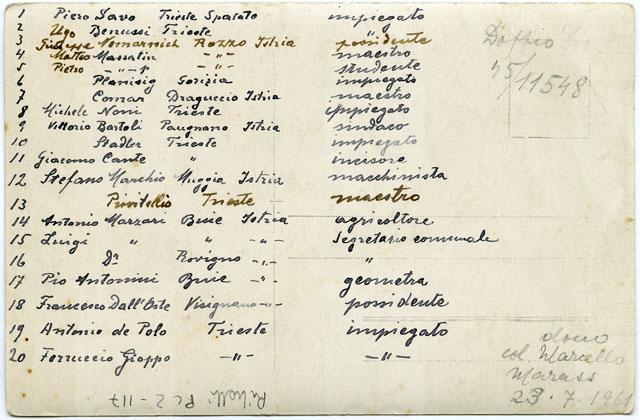 1 Piero Zavo Trieste Spalato impiegato
2 Ugo Benussi Trieste
3 Giuseppe Nemarnich Rozzo Istria possidente
4 Matteo Massalin -"- maestro
5 Pietro -"- studente
6 Planisig Gorizia impiegato
7 Comar Draguccio Istria maestro
8 Michele Neni Trieste impiegato
9 Vittorio Bartoli Paugnano Istria sindaco
10 Stadler Trieste impiegato
11 Giacomo Cante " incisore
12 Stefano Marchio Muggia Istria macchinista
13 Trieste maestro
14 Antonio Marzari Buie Istria agricoltore
15 Luigi " " -"- Segretario comunale
16 Dr Rovigno -"- "
17 Pio Antonini Buie -"- geometra
18 Francesco Dall'Oste Visignano -"- possidente
19 Antonio de Polo Trieste impiegato
20 Ferruccio Gioppo -"- -"-
Doppio
45/11548
dono
col. Marcello
Marass
23.7.1961
Pc 2-117